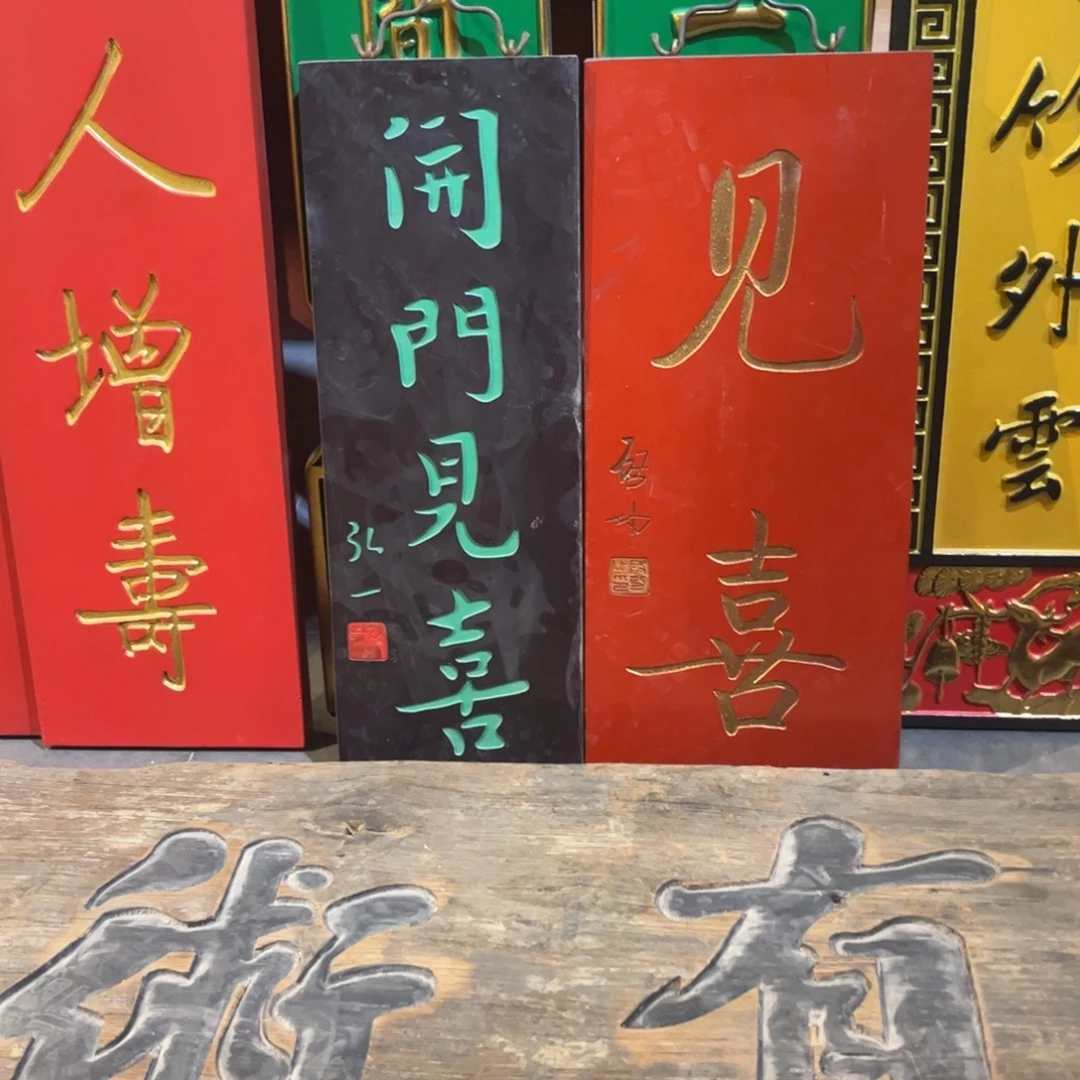 人增壽
開門見喜
弘一
见喜
启功
竹外雲
術有